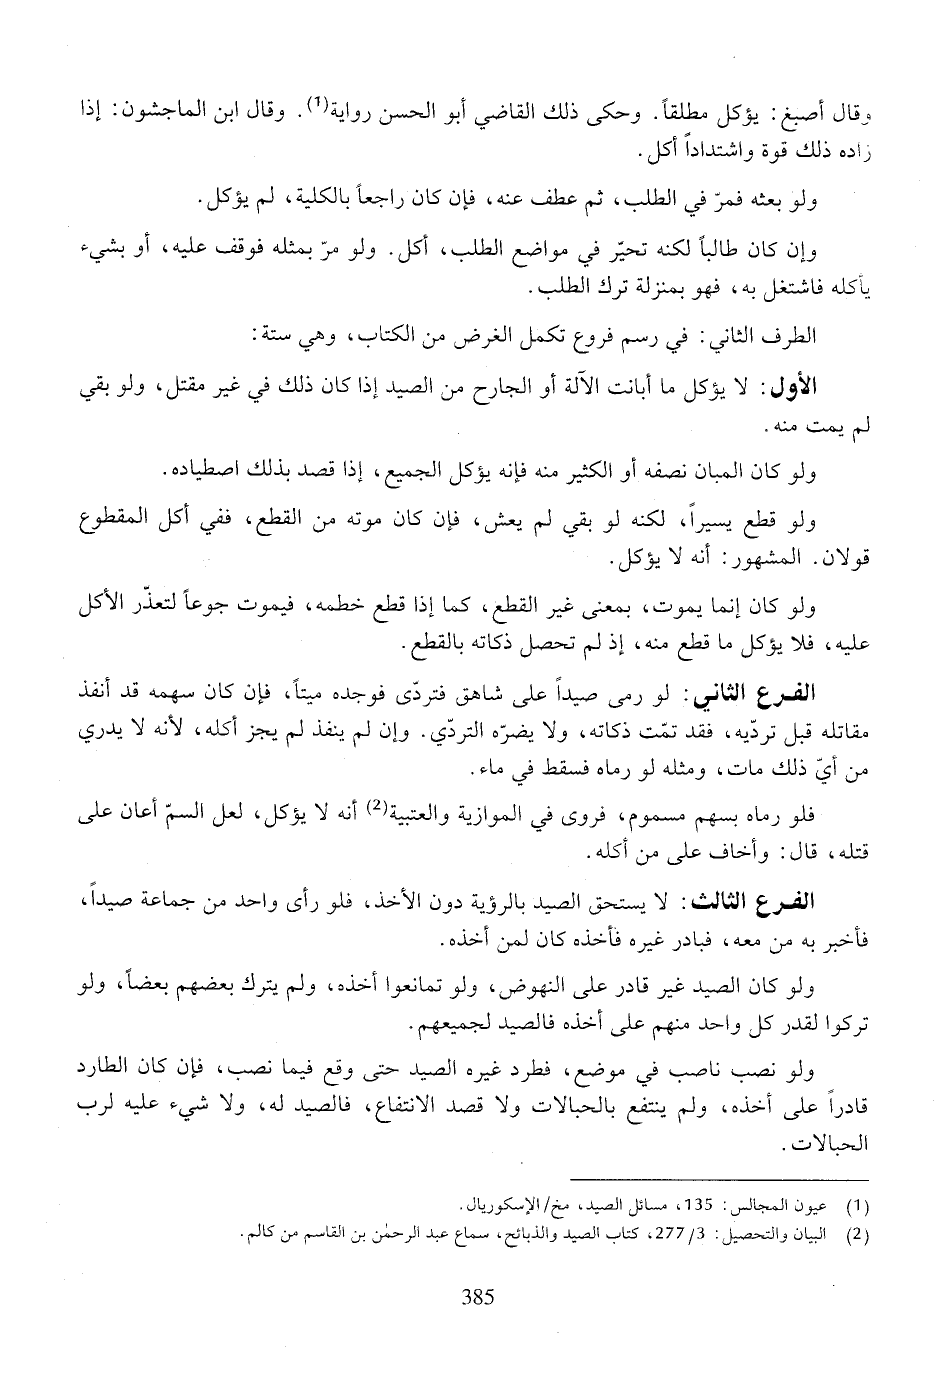 وقال أصبغ: يؤكل مطلقاً. وحكى ذلك القاضي أبو الحسن رواية(1). وقال ابن الماجشون: إذا
زاده ذلك قوة واشتداداً أكل.
ولو بعثه فمرّ في الطلب، ثم عطف عنه، فإن كان راجعاً بالكلية، لم يؤكل.
وإن كان طالباً لكنه تحيّر في مواضع الطلب، أكل. ولو مرّ بمثله فوقف عليه، أو بشيء
يأكله فاشتغل به، فهو بمنزلة ترك الطلب.
الطرف الثاني: في رسم فروع تكمل الغرض من الكتاب، وهي ستة:
الأول: لا يؤكل ما أبانت الآلة أو الجارح من الصيد إذا كان ذلك في غير مقتل، ولو بقي
لم يمت منه.
ولو كان المبان نصفه أو الكثير منه فإنه يؤكل الجميع، إذا قصد بذلك اصطياده.
ولو قطع يسيراً، لكنه لو بقي لم يعش، فإن كان موته من القطع، ففي أكل المقطوع
قولان. المشهور: أنه لا يؤكل.
ولو كان إنما يموت، بمعنى غير القطع، كما إذا قطع خطمه، فيموت جوعاً لتعذّر الأكل
عليه، فلا يؤكل ما قطع منه، إذ لم تحصل ذكاته بالقطع.
الفرع الثاني: لو رمى صيداً على شاهق فتردّى فوجده ميتاً، فإن كان سهمه قد أنفذ
مقاتله قبل تردّيه، فقد تمّت ذكاته، ولا يضرّه التردّي. وإن لم ينفذ لم يجز أكله، لأنه لا يدري
من أيّ ذلك مات، ومثله لو رماه فسقط في ماء.
فلو رماه بسهم مسموم، فروى في الموازية والعتبية(2) أنه لا يؤكل، لعل السمّ أعان على
قتله، قال: وأخاف على من أكله.
الفرع الثالث: لا يستحق الصيد بالرؤية دون الأخذ، فلو رأى واحد من جماعة صيداً،
فأخبر به من معه، فبادر غيره فأخذه كان لمن أخذه.
ولو كان الصيد غير قادر على النهوض، ولو تمانعوا أخذه، ولم يترك بعضهم بعضاً، ولو
تركوا لقدر كل واحد منهم على أخذه فالصيد لجميعهم.
ولو نصب ناصب في موضع، فطرد غيره الصيد حتى وقع فيما نصب، فإن كان الطارد
قادراً على أخذه، ولم ينتفع بالحبالات ولا قصد الانتفاع، فالصيد له، ولا شيء عليه لرب
الحبالات.
(1) عيون المجالس: 135، مسائل الصيد، مخ/الإسكوريال.
(2) البيان والتحصيل: 3/277، كتاب الصيد والذبائح، سماع عبد الرحمٰن بن القاسم من كالم.
385